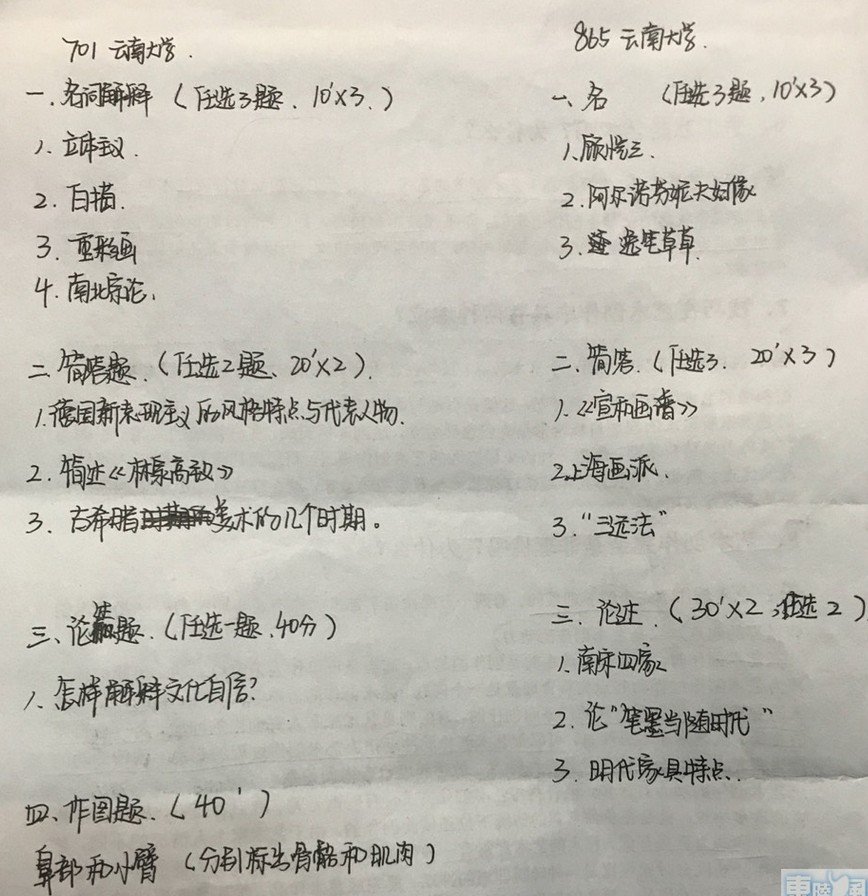 701 云南大学.
一.名词解释（任选3题、10'×3.）
1.立体主义.
2.白描.
3.重彩画
4.南北宗论.
二.简答题.（任选2题、20'×2）.
1.德国新表现主义的风格特点与代表人物.
2.简述《林泉高致》
3.古希腊美术的几个时期。
三、论述题.（任选一题、40分）
1.怎样解释文化自信?
四、作图题.（40'）
鼻部和小臂（分别标出骨骼和肌肉）
865 云南大学.
一、名（任选3题，10'×3）
1.顾恺之.
2.阿尔诺芬妮夫妇像
3.逸笔草草.
二.简答.（任选3. 20'×3）
1.《宣和画谱》
2.上海画派.
3."三远法"
三.论述.（30'×2，任选2）
1.南宋四家
2.论"笔墨当随时代"
3.明代家具特点.